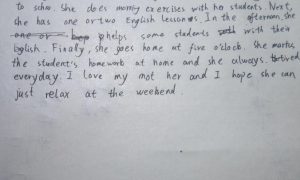 to schoo. She does morning exercises with her students. Next,
she has one or two English lessons. In the afternoon, she
one or helps some students with their
English. Finally, she goes home at five o'clock. She marks
the student's homework at home and she always tired
everyday. I love my mot her and I hope she can
just relax at the weekend.